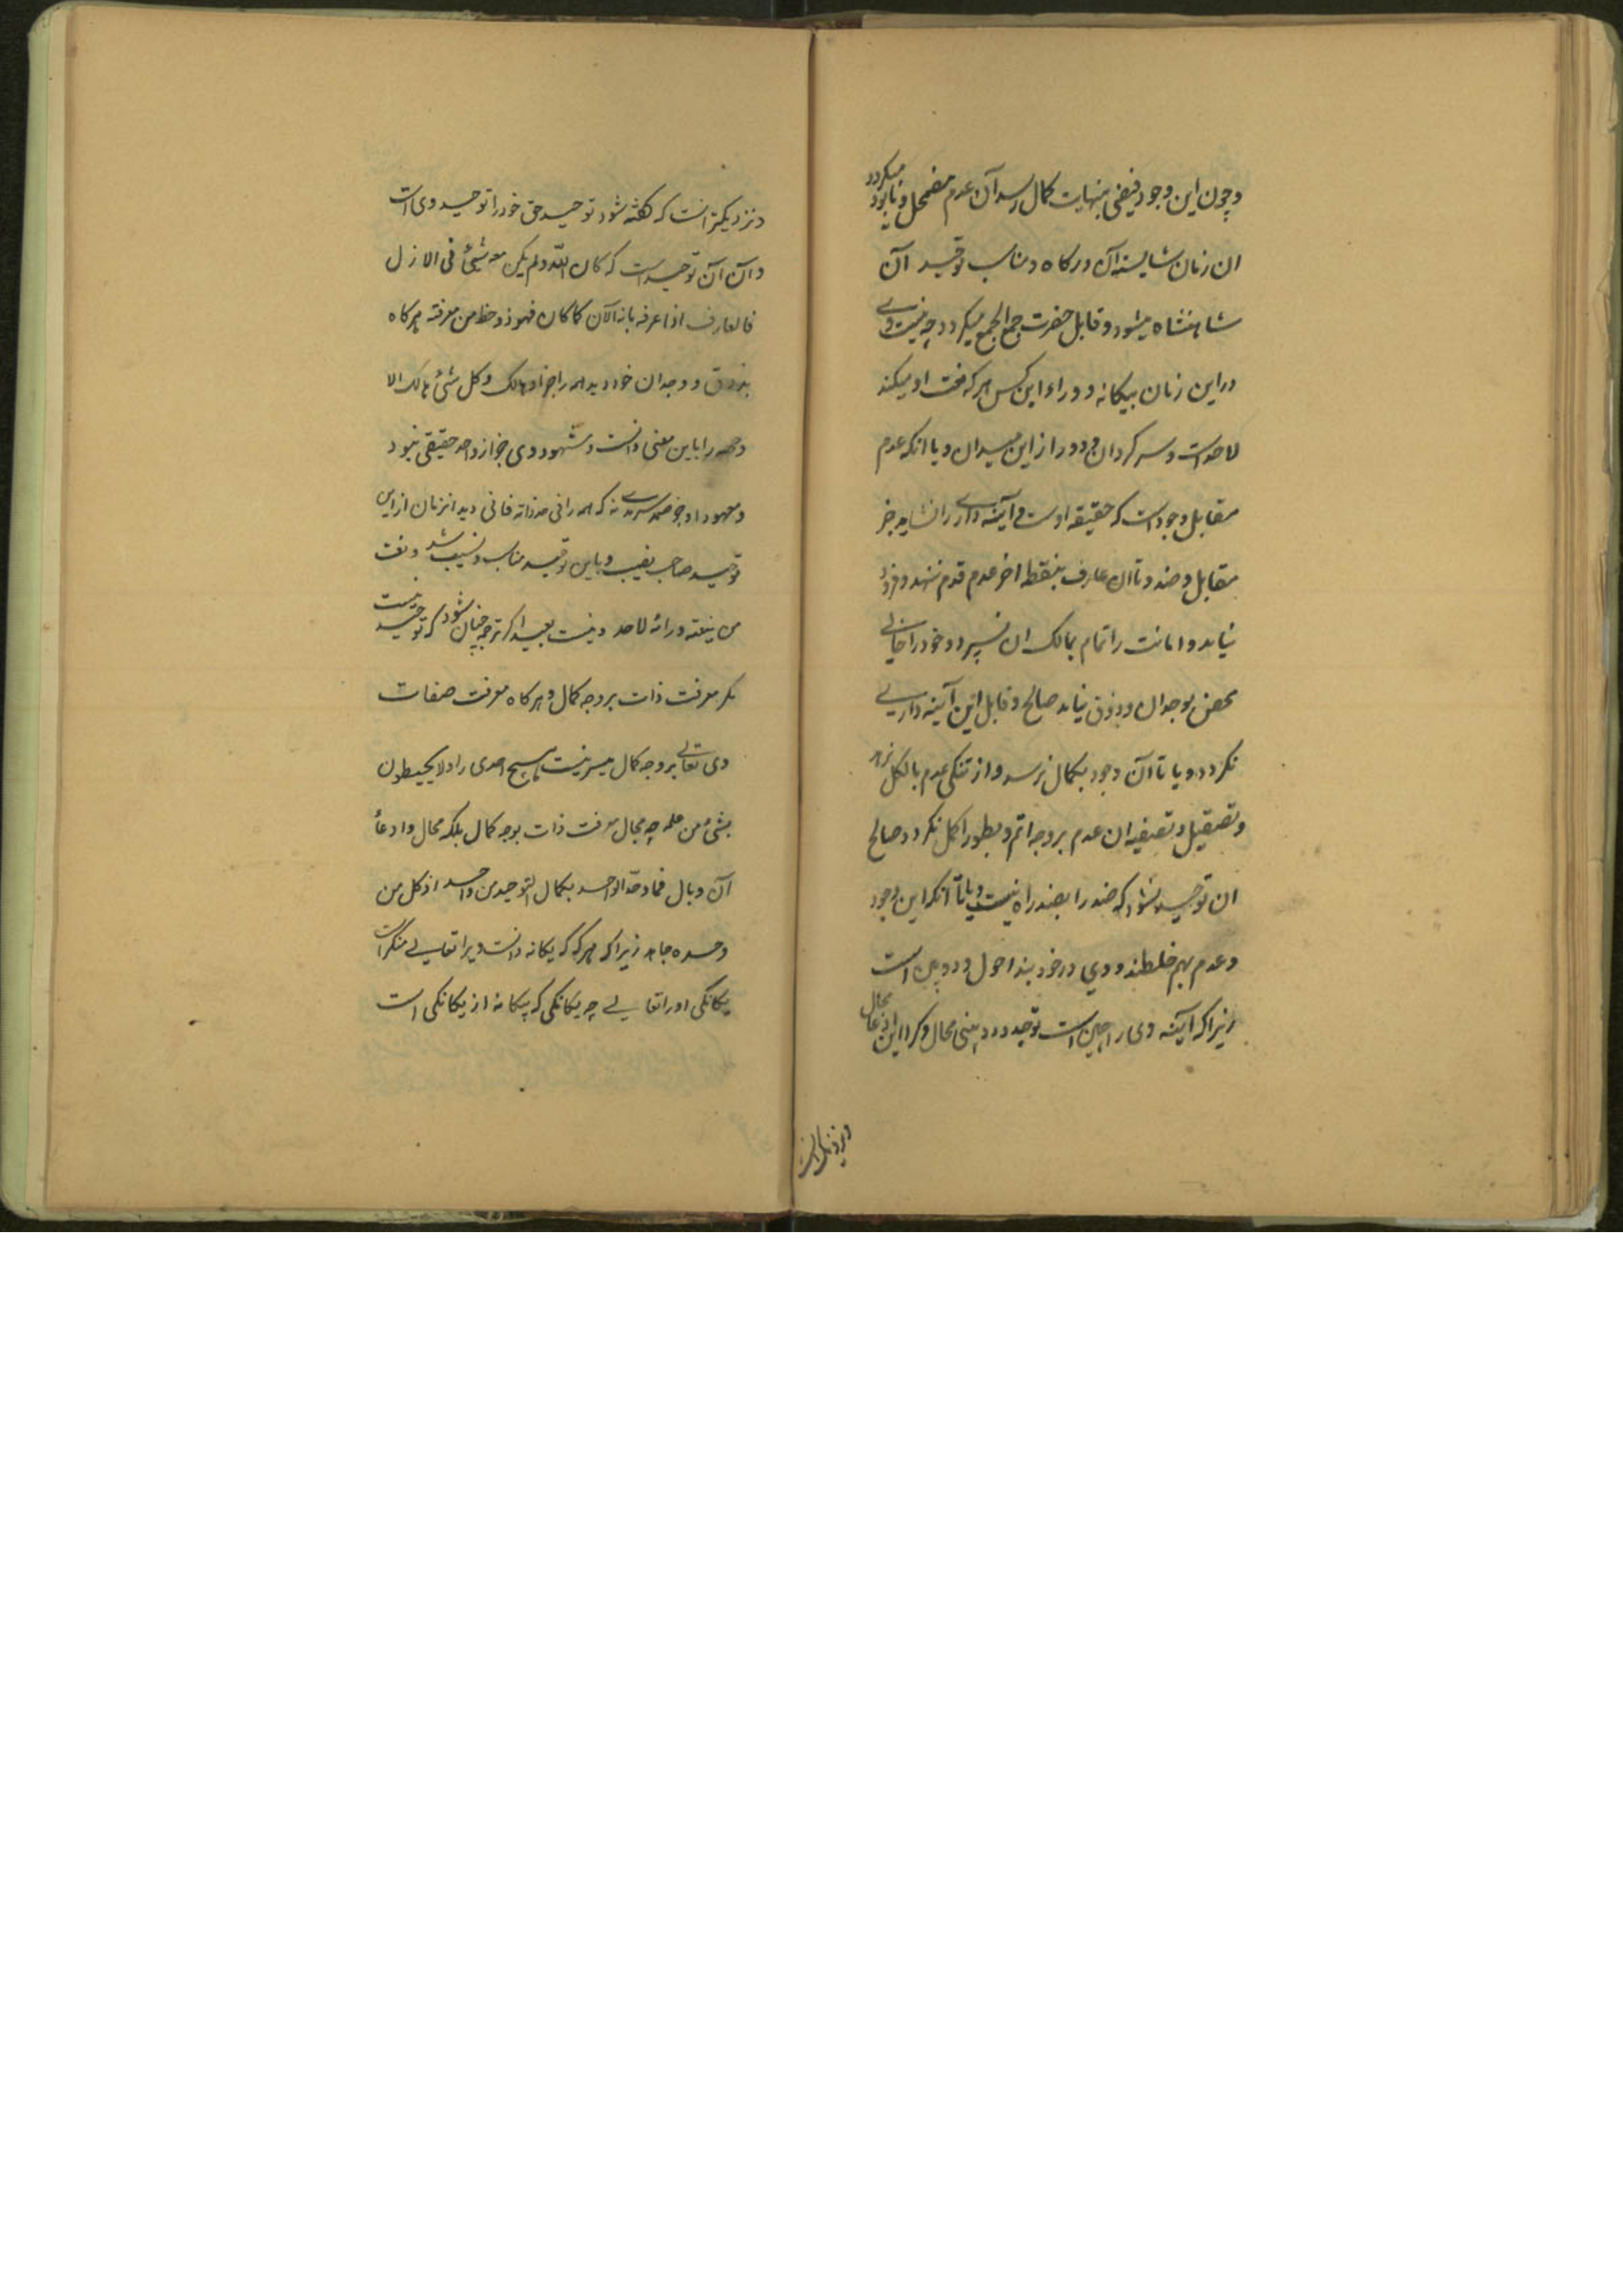 وچون این وجود فیضی بنهایت کمال رسد آن عدم مضمحل ونابود میکردد
ان زمان شایسته آن درکاه ومناسب توحید آن
شاهنشاه میشود وقابل حضرت جمع الجمع میکردد چه نیستی وی
دراین زمان بیکانه وورای این کس هرکه نعت او میکند
لاحد است وسرکردان ودور از این میدان ویا آنکه عدم
مقابل وجود است که حقیقه اوست وآیینه داری را نشاید جز
مقابل وضد وتا ان عارف بنقطه اخر عدم قدم ننهد وفرود
نیاید وامانت را تمام بمالک ان نسپرد وخود را خالی
محض بوجدان وذوق نیابد صالح وقابل این آیینه داری
نکردد ویا تا آن وجود بکمال نرسد واز تنکی عدم بالکل نرهد
وتصیقل وتصفیه ان عدم بروجه اتم وبطور اکمل نکردد صالح
ان توحید نشود که ضد را بضد راه نیست ویا تا آنکه این وجود
وعدم بهم خلطند ودوی در خود بیند احول ودوبین است
زیرا که آیینه وی را چنین است توحید در دوبینی محال وکردد این ادعا محال
ونزدیکتر انست
ونزدیکتر انست که کفته شود توحید حق خود را توحید وی است
وآن آن توحید است که کان الله ولم یکن معه شیئ فی الازل
فالعارف اذا عرفه بانه الآن کما کان فهو ذو حظ من معرفته هرکاه
بذوق ووجدان خود دید همه را جز او هالک وکل شیئ هالک الا
وجهه را باین معنی دانست ومشهود وی جز از واحد حقیقی نبود
ومعهود او جز صمد سرمدی نه که همه را فی حد ذاته فانی دید انزمان از این
توحید صاحب نصیب وباین توحید مناسب ونسیب شد ونعت
من ینعته ورائه لاحد ونیست بعید اکر ترجمه چنان شود که توحید نیست
مکر معرفت ذات بروجه کمال وهرکاه معرفت صفات
وی تعالی بروجه کمال میسر نیست هیچ احدی را ولا یحیطون
بشیئ من علمه چه مجال معرفت ذات بوجه کمال بلکه محال وادعأ
آن وبال فما وحّد الواحد بکمال التوحید من واحد اذ کل من
وحده جاحد زیرا که هرکه که یکانه دانست ویرا تعالی منکر است
یکانکی او را تعالی چه یکانکی که بیکانه از یکانکی است